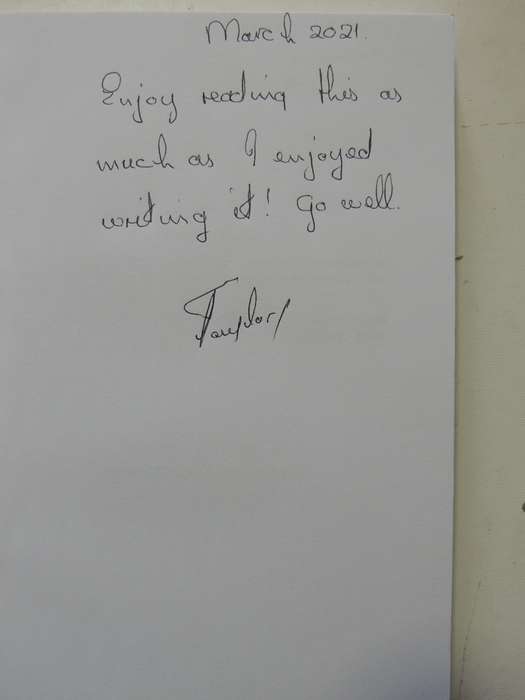 March 2021.
Enjoy reading this as
much as I enjoyed
writing it! Go well.
Taylor